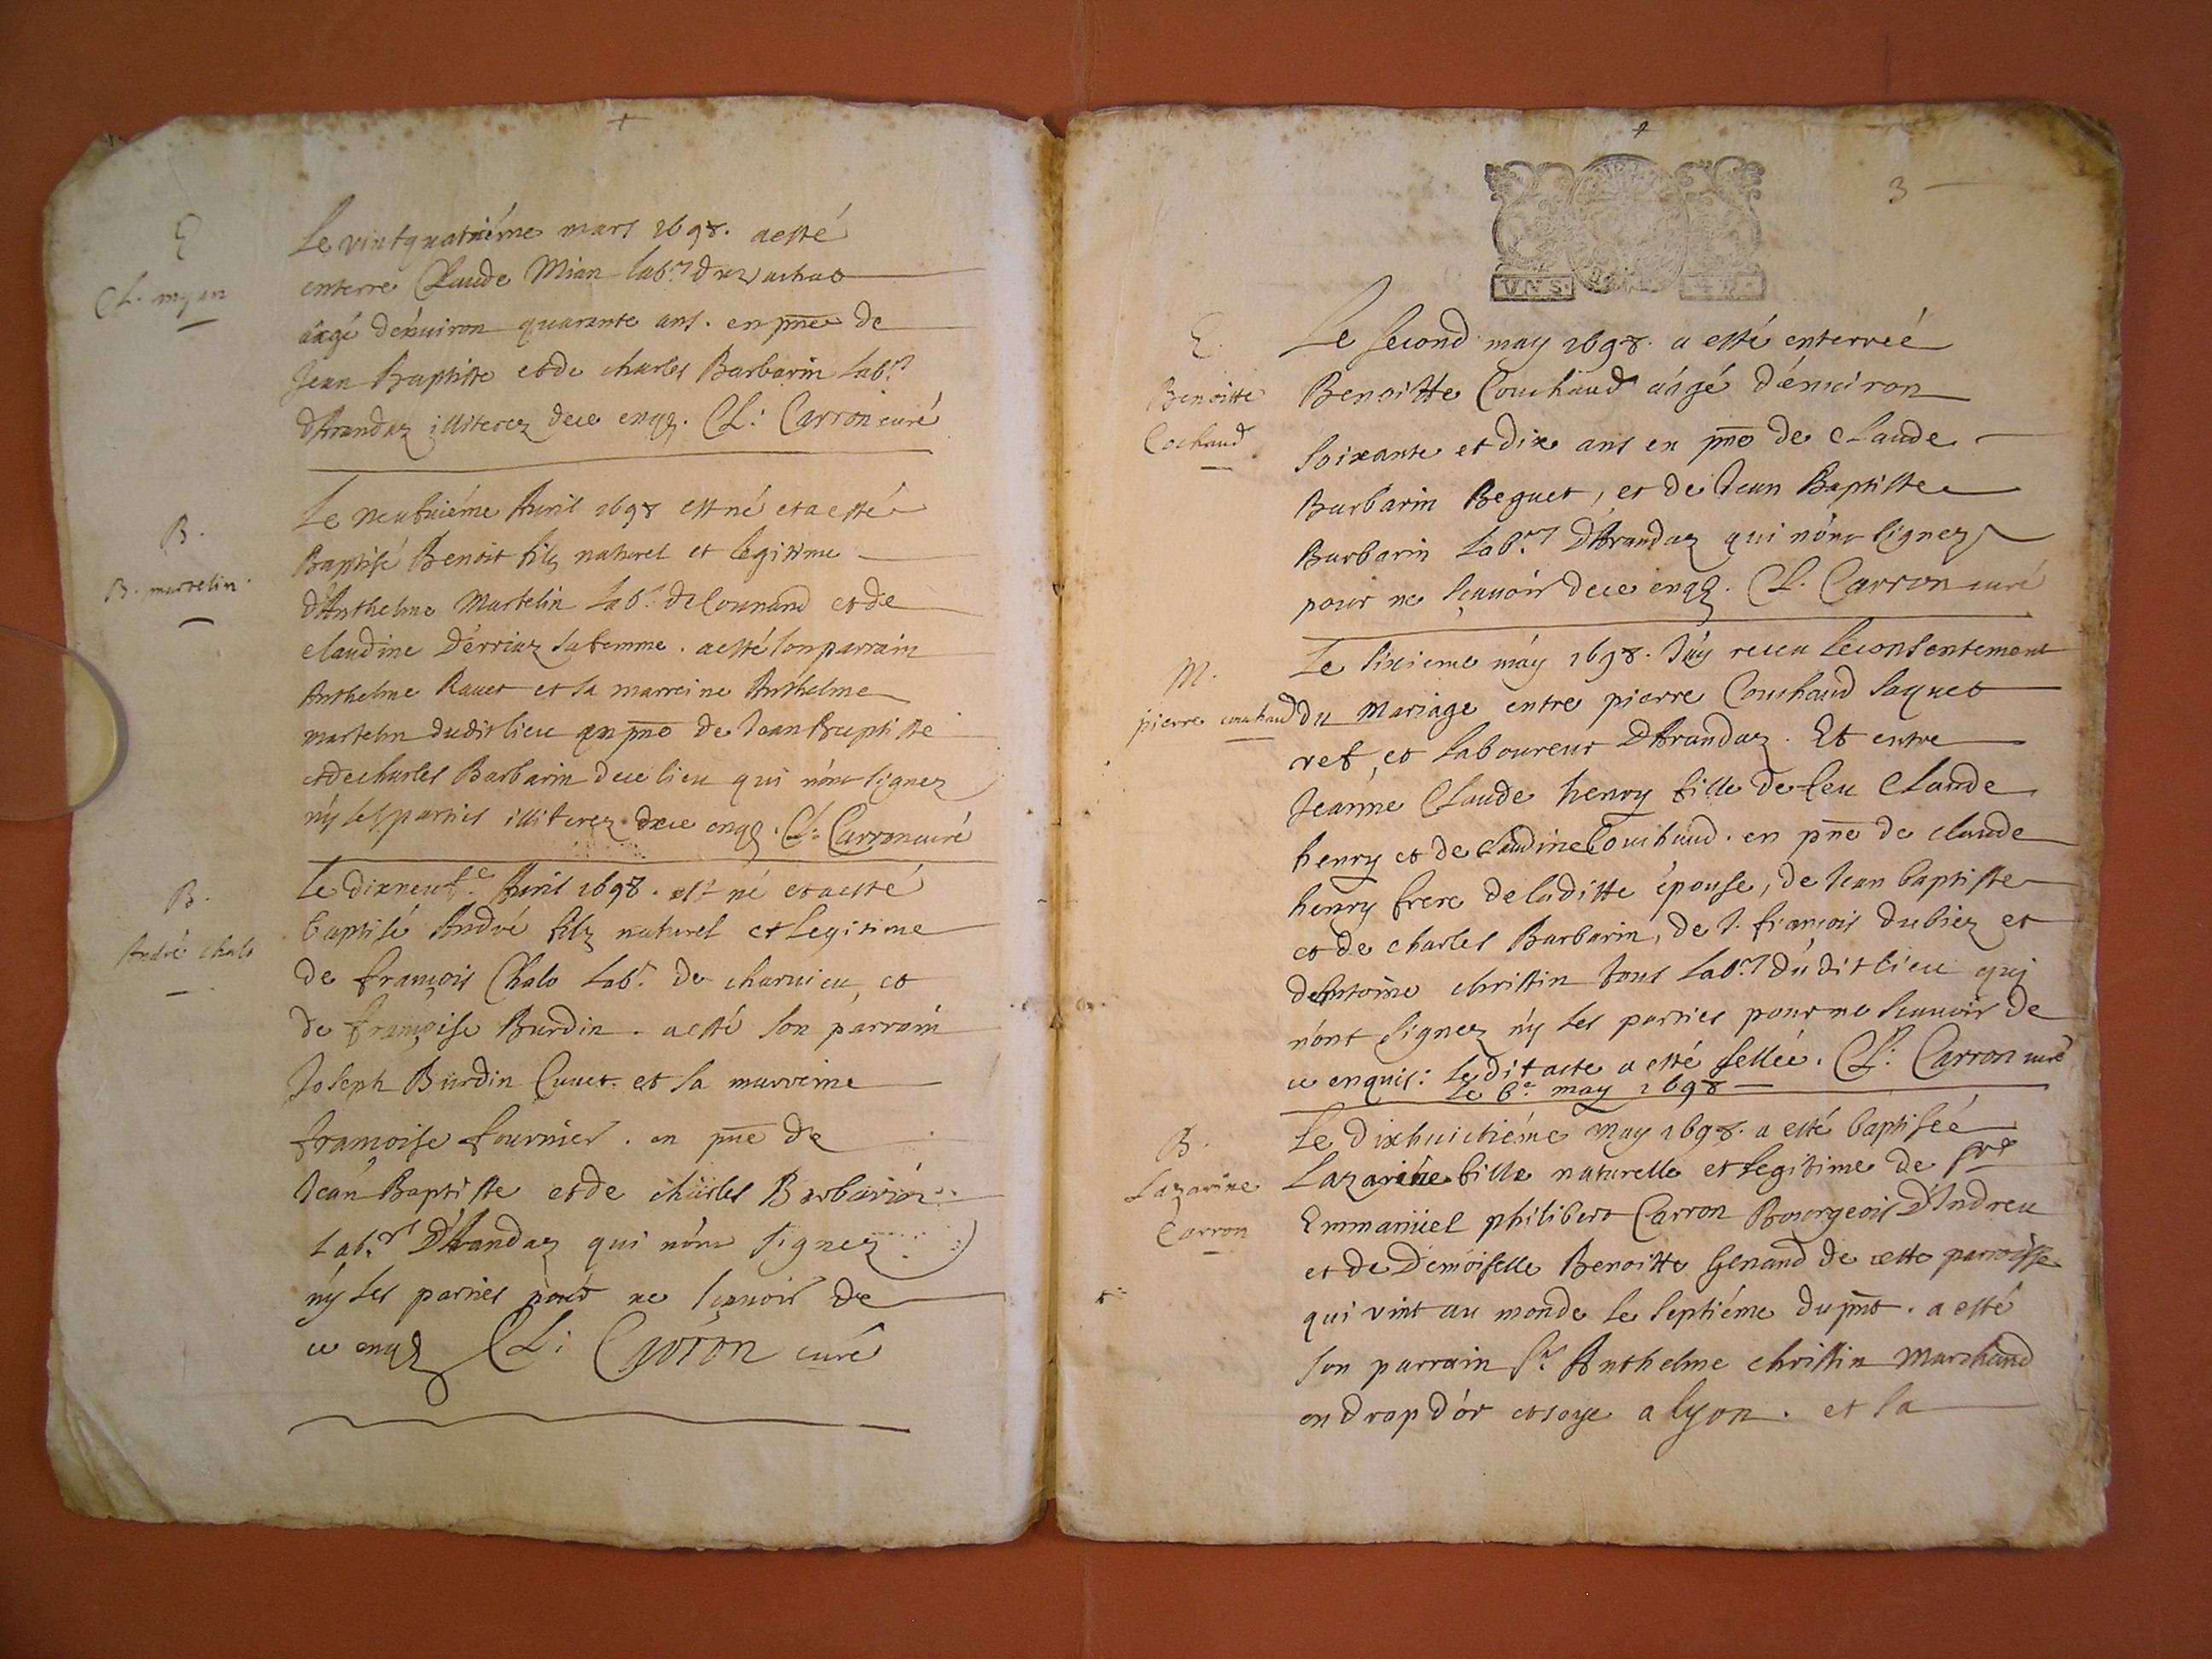 E
Cl. myan
Le vintquatriéme mars 1698. a esté
enterre Claude Mian lab.r du
áagé d'énuiron quarante ans. en pñce de
Jean Baptiste et de charles Barbarin lab.rs
d'Arandaz illiterez de ce enqz. Cl: Carron curé
B.
B. martelin
Le neufuiéme Auril 1698 est né et a esté
Baptisé Benoit filz naturel et legitime
d'Anthelme Martelin Lab.r de Counand et de
claudine Dérriaz sa femme. a esté son parrain
Anthelme Rauet et la marreine Anthelme
martelin dudit lieu en pñce de Jean Baptiste
et de charles Barbarin de ce lieu qui n'ont signez
ny les parties illiterez de ce enqz. Cl: Carron curé
B.
André chalo
Le dixneuf.e Auril 1698. est né et a esté
baptisé André filz naturel et legitime
de françois Chalo Lab.r de charuieu, et
de françoise Burdin. a esté son parrain
Joseph Burdin Cuuet. et sa marreine
françoise fournier. en pñce de
Jean Baptiste et de charles Barbarin
Lab.rs D'Arandaz qui n'ont signez
ny les parties pour ne sçauoir de
ce enqz Cl: Carron curé
3
E.
Benoitte
Cochaud
Le second may 1698. a esté enterreé
Benoitte Couchaud aágé d'énuiron
soixante et dix ans en pñce de Claude
Barbarin Beguet, et de Jean Baptiste
Barbarin Lab.rs D'Arandaz qui n'ont signez
pour ne sçauoir de ce enqz. Cl. Carron curé
M.
pierre couchaud
Le sixieme máy 1698. J'ay receu le consentement
du mariage entre pierre Couchaud Jaquet
vef, et laboureur D'Arandaz. Et entre
Jeanne Claude henry fille de feu Claude
henry et de Claudine Couchaud. en pñce de claude
henry frere de laditte épouse, de Jean baptiste
et de charles Barbarin, de J. françois dubiez et
d'Antoine christin tous Lab.rs dúdit lieu qui
n'ont signez ny les parties pour ne scauoir de
ce enquis: le dit acte a esté sellée. Cl: Carron curé
le 6.e may 1698
B.
Lazarine
Carron
Le dixhuictiéme may 1698. a esté baptiseé
Lazarine fille naturelle et legitime de
Emmanüel philibert Carron Bourgeois D'Indreu
et de Demoiselle Benoitte Genand de cette parroisse
qui vint au monde le septiéme du pñt. a esté
son parrain S.r Anthelme christin Marchand
en drap d'ór et soye a lyon. et la